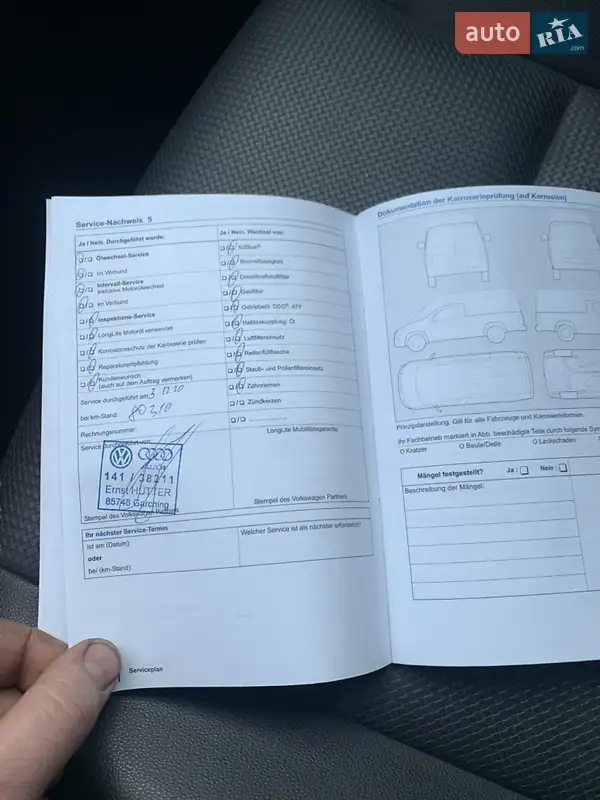 auto
RIA
.com
Service-Nachweis 5
Ja / Nein, Durchgeführt wurde:
Ölwechsel-Service
im Verbund
Intervall-Service
inklusive Motorölwechsel
im Verbund
Inspektions-Service
LongLife Motoröl verwendet
Korrosionsschutz der Karosserie prüfen
Reparaturempfehlung
Kundenwunsch
(auch auf dem Auftrag vermerken)
Service durchgeführt am:
bei km-Stand: 80310
Rechnungsnummer:
Service durchgesetzt von:
Audi
141 / 38211
Ernst HUTTER
85748 Garching
Stempel des Volkswagen Partners
Ja / Nein, Wechsel von:
AdBlue®
Bremsflüssigkeit
Dieselkraftstofffilter
Gasfilter
Getriebeöl: DSG®, ATF
Haldexkupplung: Öl
Luftfiltereinsatz
Reifenfüllflasche
Staub- und Pollenfiltereinsatz
Zahnriemen
Zündkerzen
LongLife Mobilitätsgarantie
Stempel des Volkswagen Partners
Ihr nächster Service-Termin
ist am (Datum):
oder
bei (km-Stand):
Welcher Service ist als nächster erforderlich?
Serviceplan
Dokumentation der Karosserieprüfung (auf Korrosion)
Prinzipdarstellung. Gilt für alle Fahrzeuge und Karosserieformen.
Ihr Fachbetrieb markiert in Abb. beschädigte Teile durch folgende
O Kratzer O Beule/Delle O Lackschaden
Mängel festgestellt? Ja: Nein:
Beschreibung der Mängel: